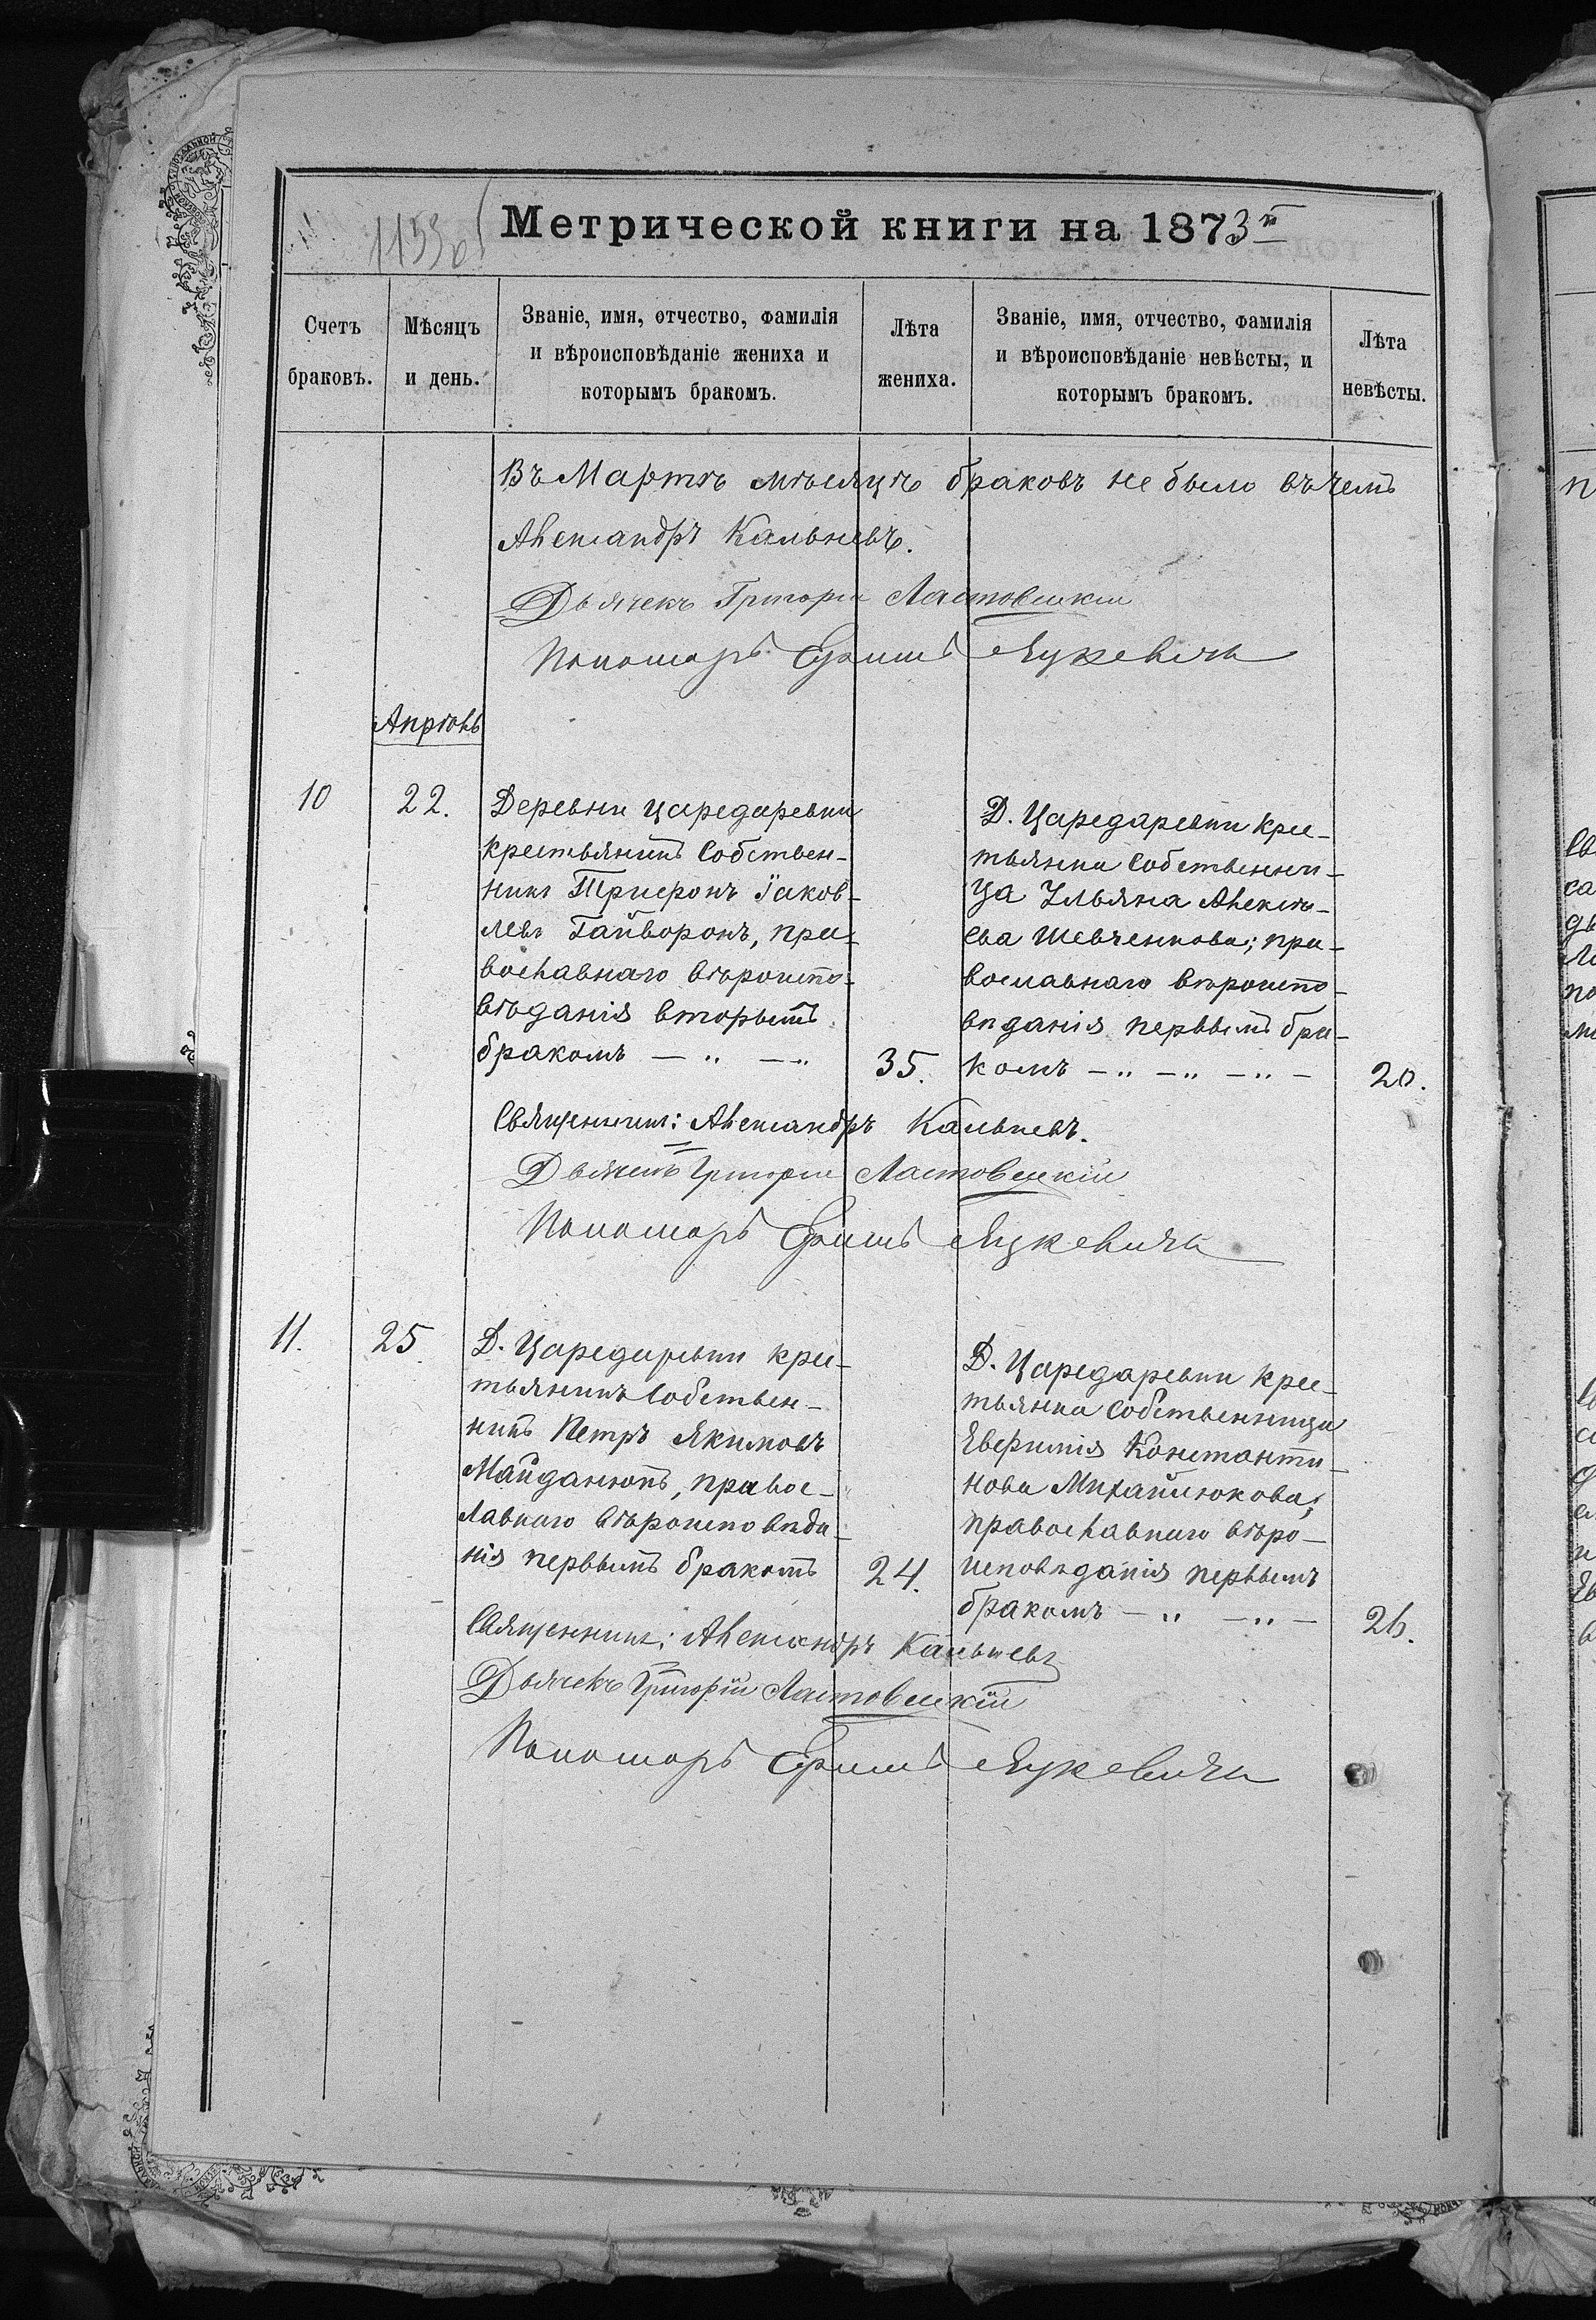 1153 об
Метрической книги на 1873й
Счетъ браковъ.
Мѣсяцъ и день.
Званіе, имя, отчество, фамилія и вѣроисповѣданіе жениха и которымъ бракомъ.
Лѣта жениха.
Званіе, имя, отчество, фамилія и вѣроисповѣданіе невѣсты, и которымъ бракомъ.
Лѣта невѣсты.
Въ Мартѣ мѣсяцѣ браковъ не было въ чемъ
Александръ Кальневъ.
Дьячекъ Григорій Ластовецкій
Пономарь Ефимъ Яцкевичъ
Апрѣль
10
22.
Деревни Царедаревки
крестьянинъ собствен-
никъ Трифонъ Іаков-
левъ Гайворонъ, пра-
вославнаго вѣроиспо-
вѣданія вторымъ
бракомъ — " — "
35.
Д. Царедаревки крес-
тьянка собственни-
ца Ульяна Алексѣ-
ева Шевченкова; пра-
вославнаго вѣроиспо-
вѣданія первымъ бра-
комъ — " — " — " —
20.
Священникъ: Александръ Кальневъ.
Дьячекъ Григорій Ластовецкій
Пономарь Ефимъ Яцкевичъ
11.
25
Д. Царедаревки крес-
тьянинъ собствен-
никъ Петръ Якимовъ
Майданюкъ, правос-
лавнаго вѣроисповѣда-
нія первымъ бракомъ
24.
Д. Царедаревки крес-
тьянка собственница
Евфимія Константи-
нова Михайлюкова;
православнаго вѣро-
исповѣданія первымъ
бракомъ — " — " —
26.
Священникъ: Александръ Кальневъ
Дьячекъ Григорій Ластовецкій
Пономарь Ефимъ Яцкевичъ